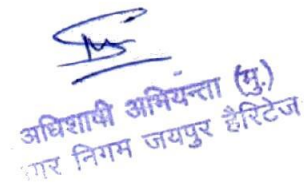 अधिशाषी अभियन्ता (मु.)
निगम जयपुर हैरिटेज